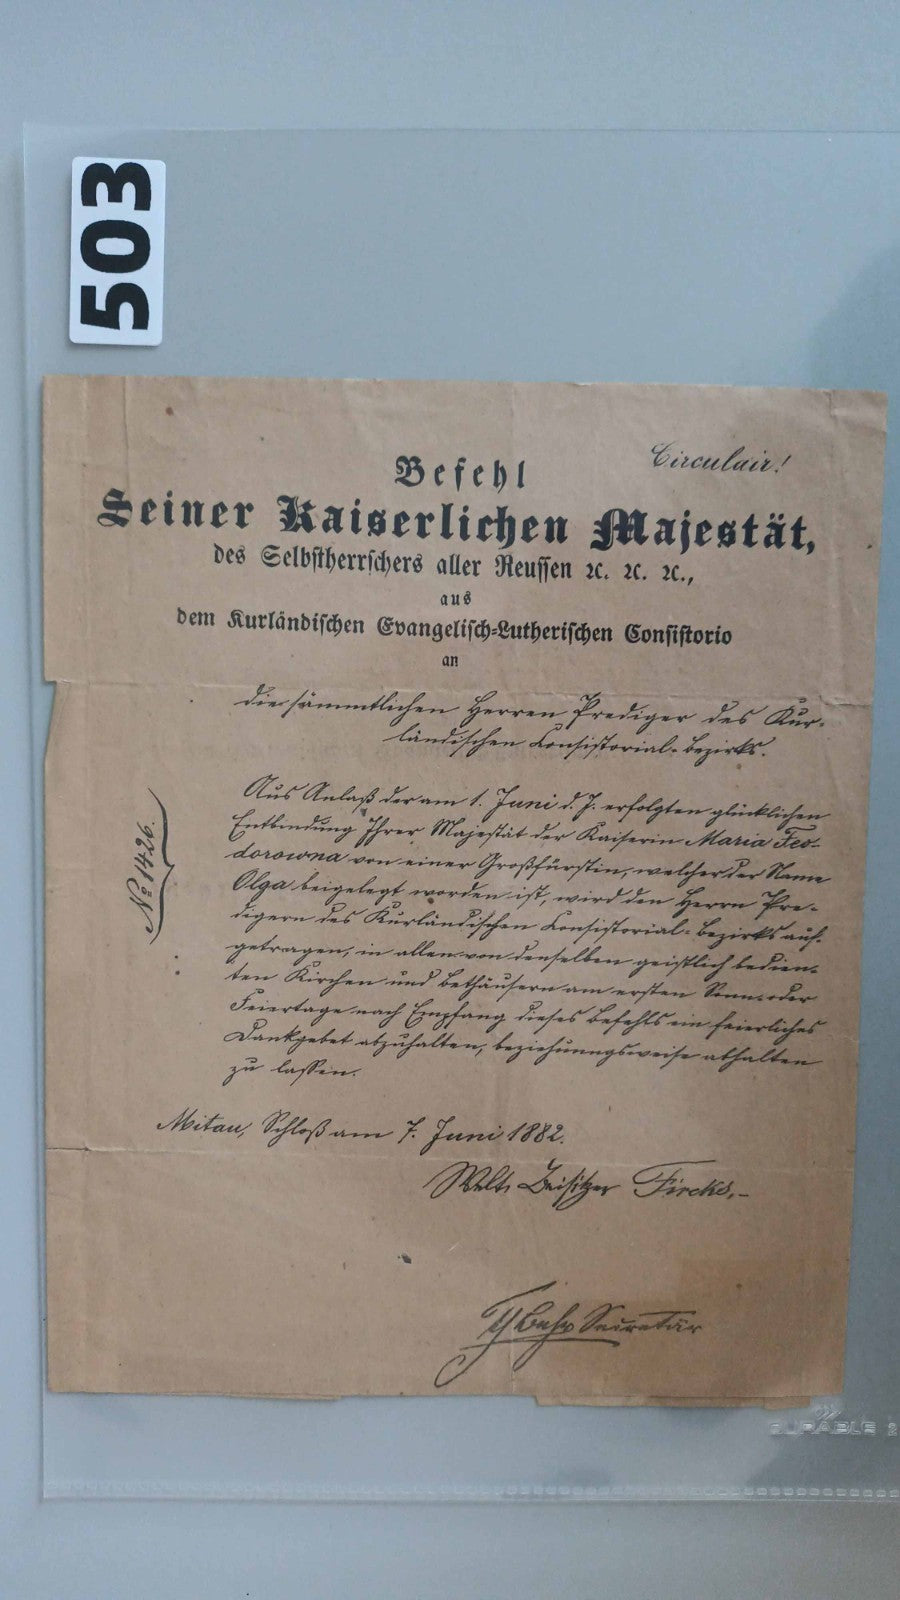 503
Circulair!
Befehl
Seiner Kaiserlichen Majestät,
des Selbstherrschers aller Reussen ꝛc. ꝛc. ꝛc.,
aus
dem Kurländischen Evangelisch-Lutherischen Consistorio
an
die sämmtlichen Herren Prediger des Kur-
ländischen Consistorial-Bezirks.
No 1426.
Aus Anlaß der am 1. Juni d. J. erfolgten glücklichen
Entbindung Ihrer Majestät der Kaiserin Maria Feo-
dorowna von einer Großfürstin, welcher der Name
Olga beigelegt worden ist, wird den Herrn Pre-
digern des Kurländischen Consistorial-Bezirks auf-
getragen, in allen von denselben geistlich bedien-
ten Kirchen und Bethäusern am ersten Sonn- oder
Feiertage nach Empfang dieses Befehls ein feierliches
Dankgebet abzuhalten, beziehungsweise abhalten
zu lassen.
Mitau, Schloß am 7. Juni 1882.
Weltl. Beisitzer Fircks.
Secretär
DURABLE